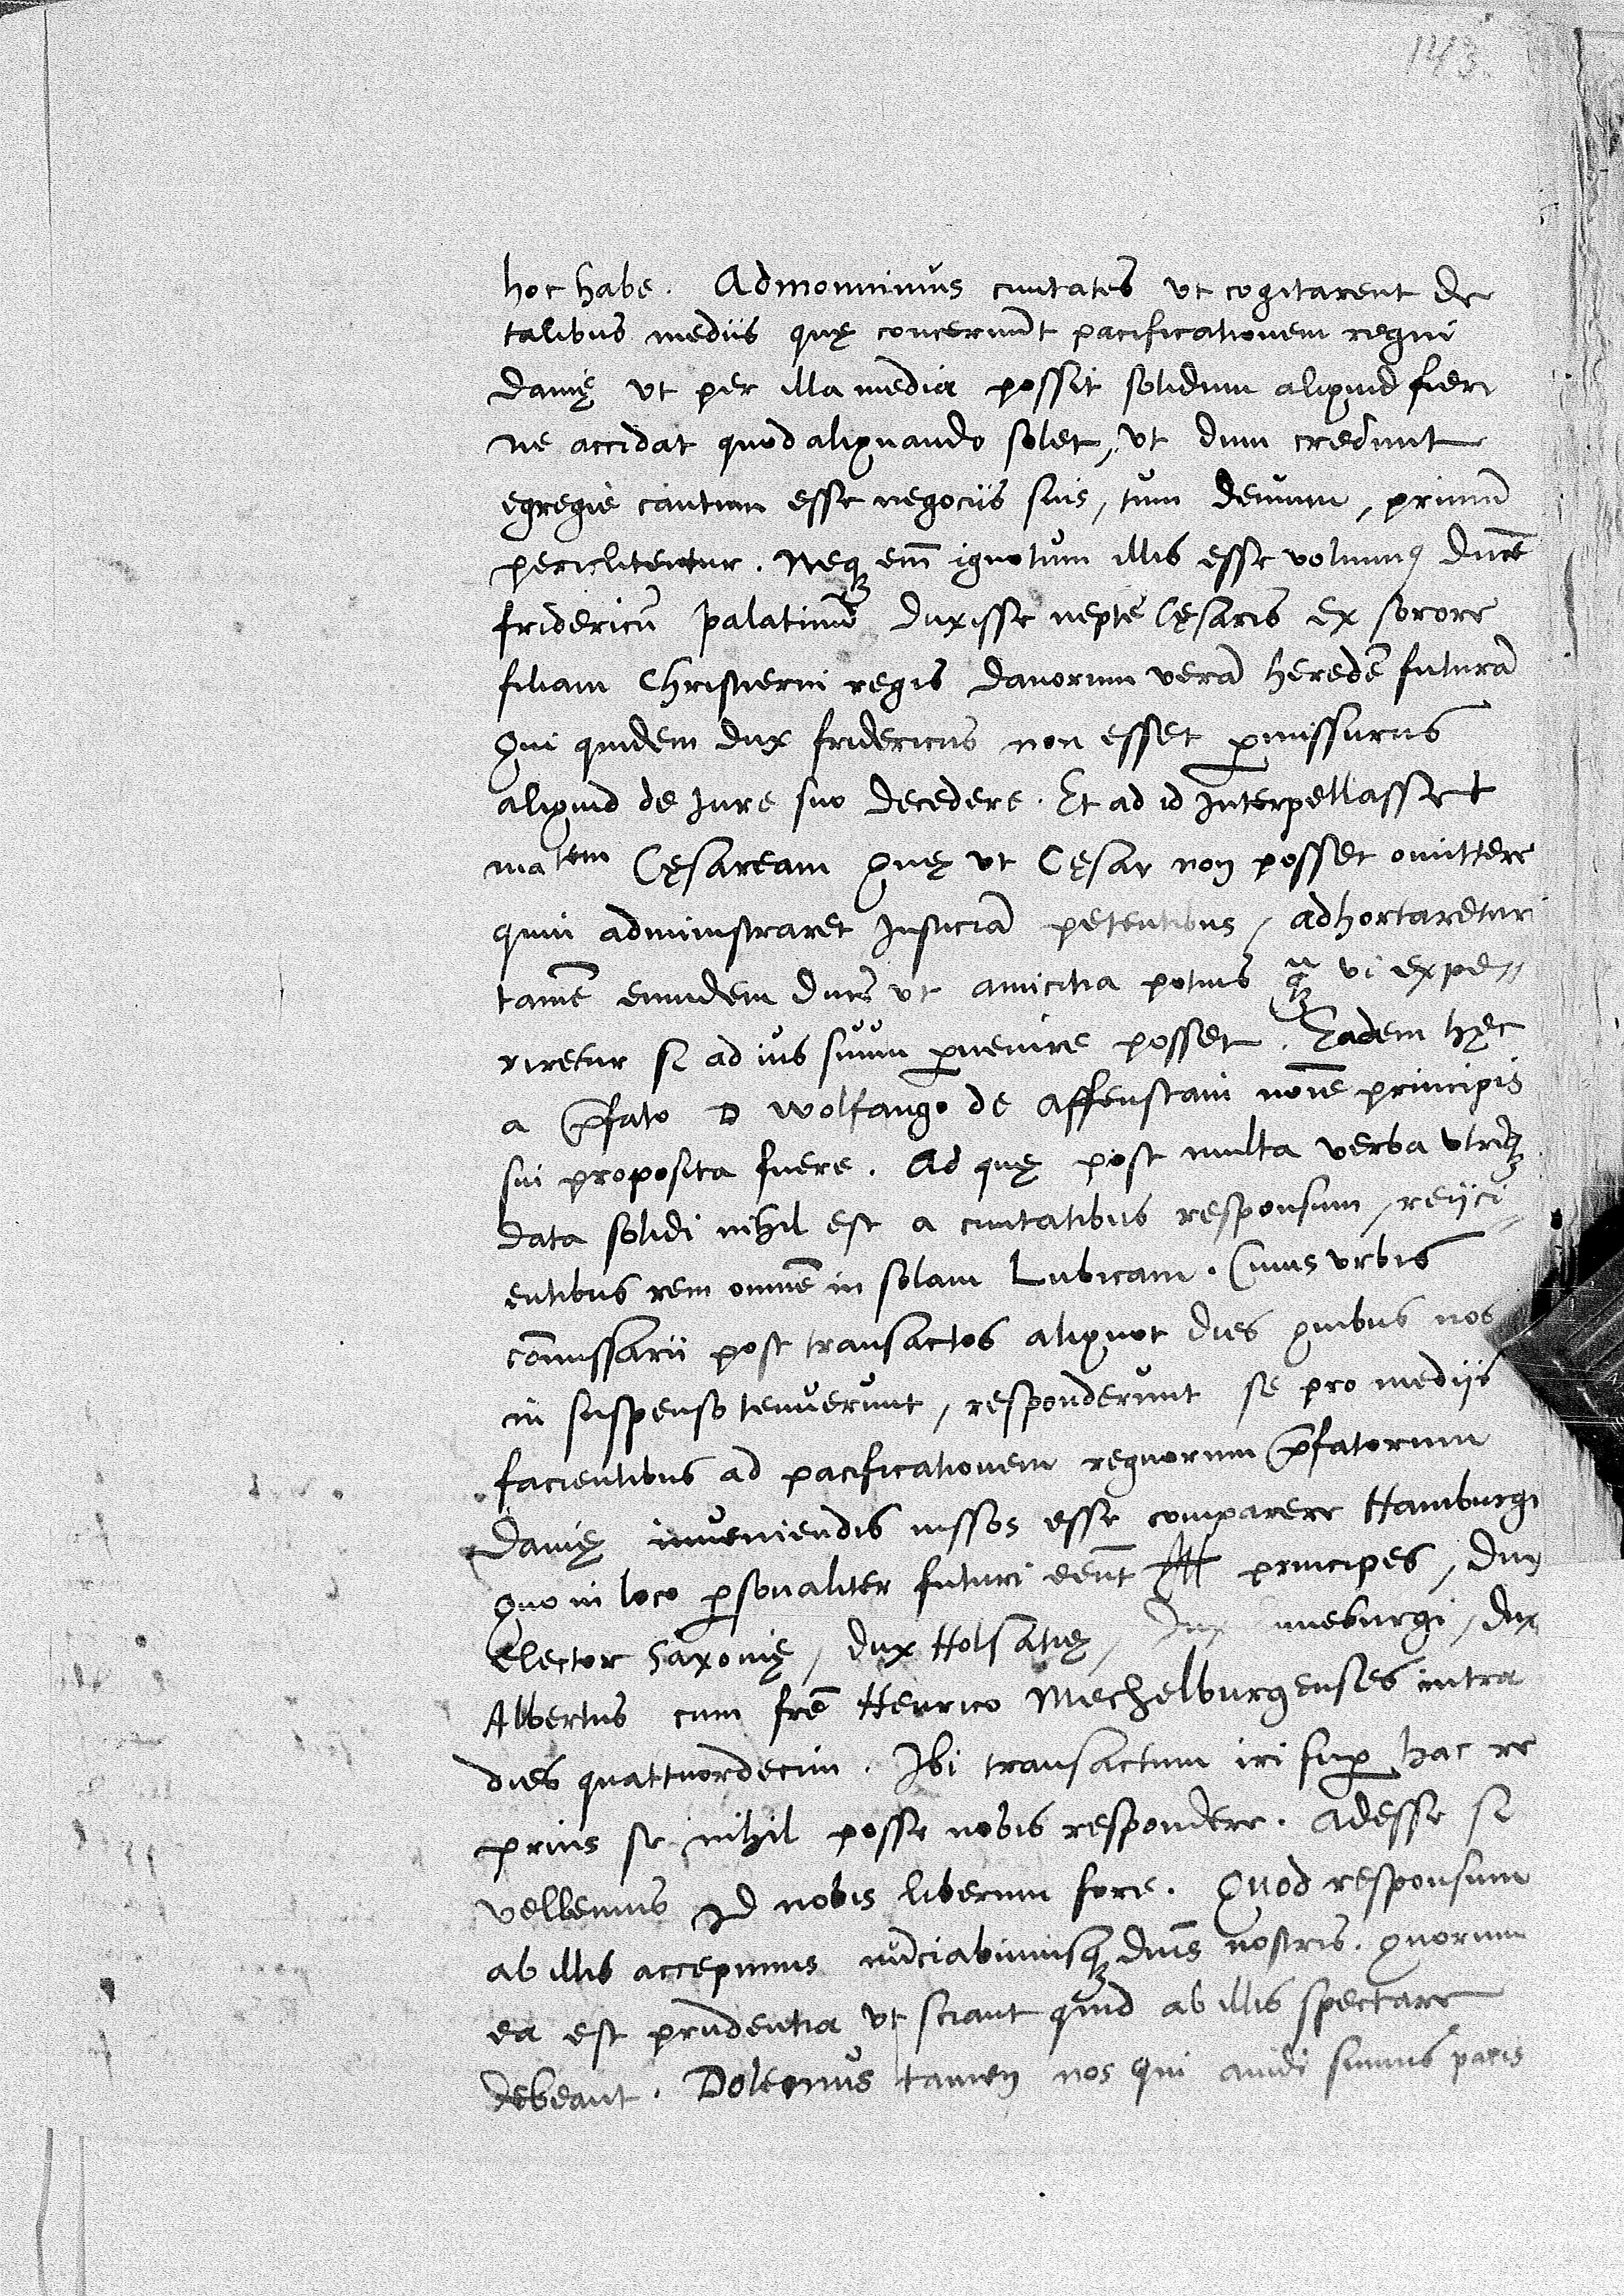 143.
hoc habe. Admonuimus ciuitates vt cogitarent de
talibus mediis quę concernūt pacificationem regni
danię vt per illa media possit solidum aliquid fieri
ne accidat quod aliquando solet, vt dum credunt
egregie cautum esse negociis suis, tum demum, primū
periclitentur. Neqꝫ em̄ ignotum illis esse volumus ducē
fridericū palatinū duxisse neptē Cęsaris ex sorore
filiam Christierni regis danorum verā heredē futurā
Qui quidem dux fridericus non esset ꝑmissurus
aliquid de Jure suo decedere. Et ad id Interpellasset
matem Cęsaream Quę vt Cęsar non posset omittere
quin administraret Justiciā petentibus, adhortaretur
tamē eundem ducē vt amicitia potius qꝫ vi expe//
riretur si ad ius suum ꝑuenire posset. Eadem hęc
a p̄fato D Wolfango de Affenstain noīe principis
sui proposita fuere. Ad quę post multa verba vtrīqꝫ
data solidi nihil est a ciuitatibus responsum, reijci//
entibus rem omnē in solam Lubicam. Cuius vrbis
cōmissarii post transactos aliquot dies quibus nos
in suspenso tenuerunt, responderunt se pro medijs
facientibus ad pacificationem regnorum p̄fatorum
Danię inueniendis missos esse comparere Hamburgi
Quo in loco ꝑsonaliter futuri eēnt principes, dux
Elector Saxonię, dux Holsatię, Dux unęburgi, dux
Albertus cum frē Henrico Mechelburgenses intra
dies quattuordecim. Ibi transactum iri suꝑ hac re
prius se nihil posse nobis respondere. Adesse si
vellemus Id nobis liberum fore. Quod responsum
ab illis accepimus nūciabimusqꝫ dnis̄ nostris. quorum
ea est prudentia vt sciant quid ab illis spectare
debeant. Dolemus tamen nos qui auidi sumus pacis